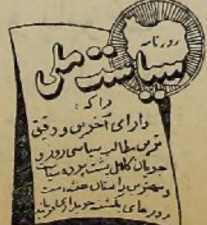 روزنامه
سیاست ملی
را که:
دارای آخرین و دقیق
ترین مطالب سیاسی روز و
جریان کامل پشت پرده سیاست
و بهترین داستان هفته است
روزهای یکشنبه خریداری فرمائید